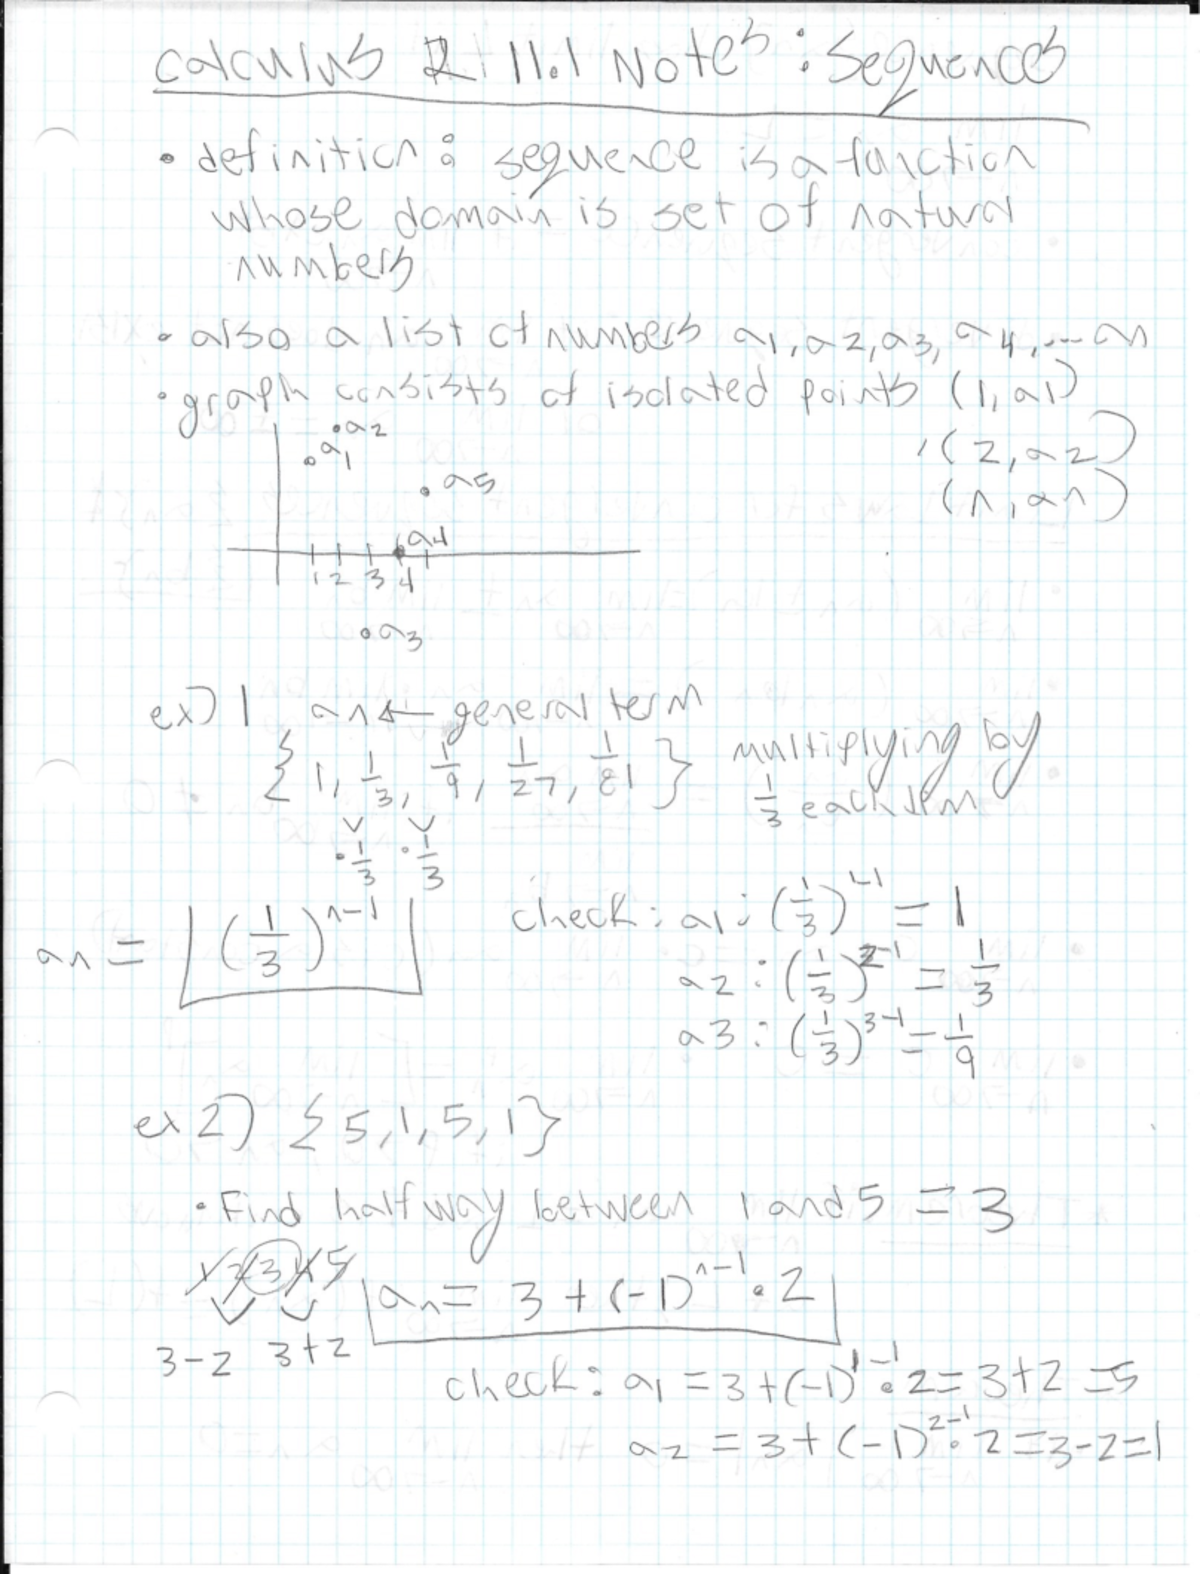 Calculus 2: 11.1 Notes: Sequences
• definition: sequence is a function
whose domain is set of natural
numbers
• also a list of numbers a1, a2, a3, a4, ... an
• graph consists of isolated points (1, a1)
, (2, a2)
(n, an)
a2
a1
a5
a4
1 2 3 4
a3
ex) 1 an ← general term
{1, 1/3, 1/9, 1/27, 1/81} multiplying by
1/3 each term
·1/3 ·1/3
an = (1/3)^(n-1)
check: a1: (1/3)^(1-1) = 1
a2: (1/3)^(2-1) = 1/3
a3: (1/3)^(3-1) = 1/9
ex 2) {5, 1, 5, 1}
• Find halfway between 1 and 5 = 3
1 2 3 4 5
an = 3 + (-1)^(n-1) · 2
3-2 3+2
check: a1 = 3 + (-1)^(1-1) · 2 = 3+2 = 5
a2 = 3 + (-1)^(2-1) · 2 = 3-2 = 1